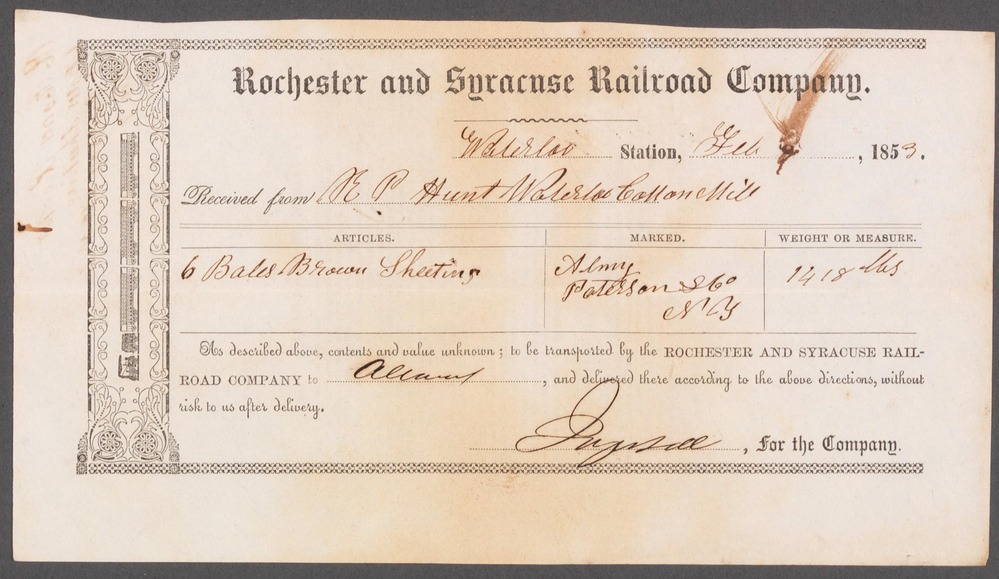 Rochester and Syracuse Railroad Company.
Waterloo Station, Feb , 1853.
Received from R P Hunt Waterloo Cotton Mill
ARTICLES. MARKED. WEIGHT OR MEASURE.
6 Bales Brown Sheeting Almy 1418 lbs
Paterson & Co
N Y
As described above, contents and value unknown; to be transported by the ROCHESTER AND SYRACUSE RAIL-
ROAD COMPANY to Albany, and delivered there according to the above directions, without
risk to us after delivery.
, For the Company.